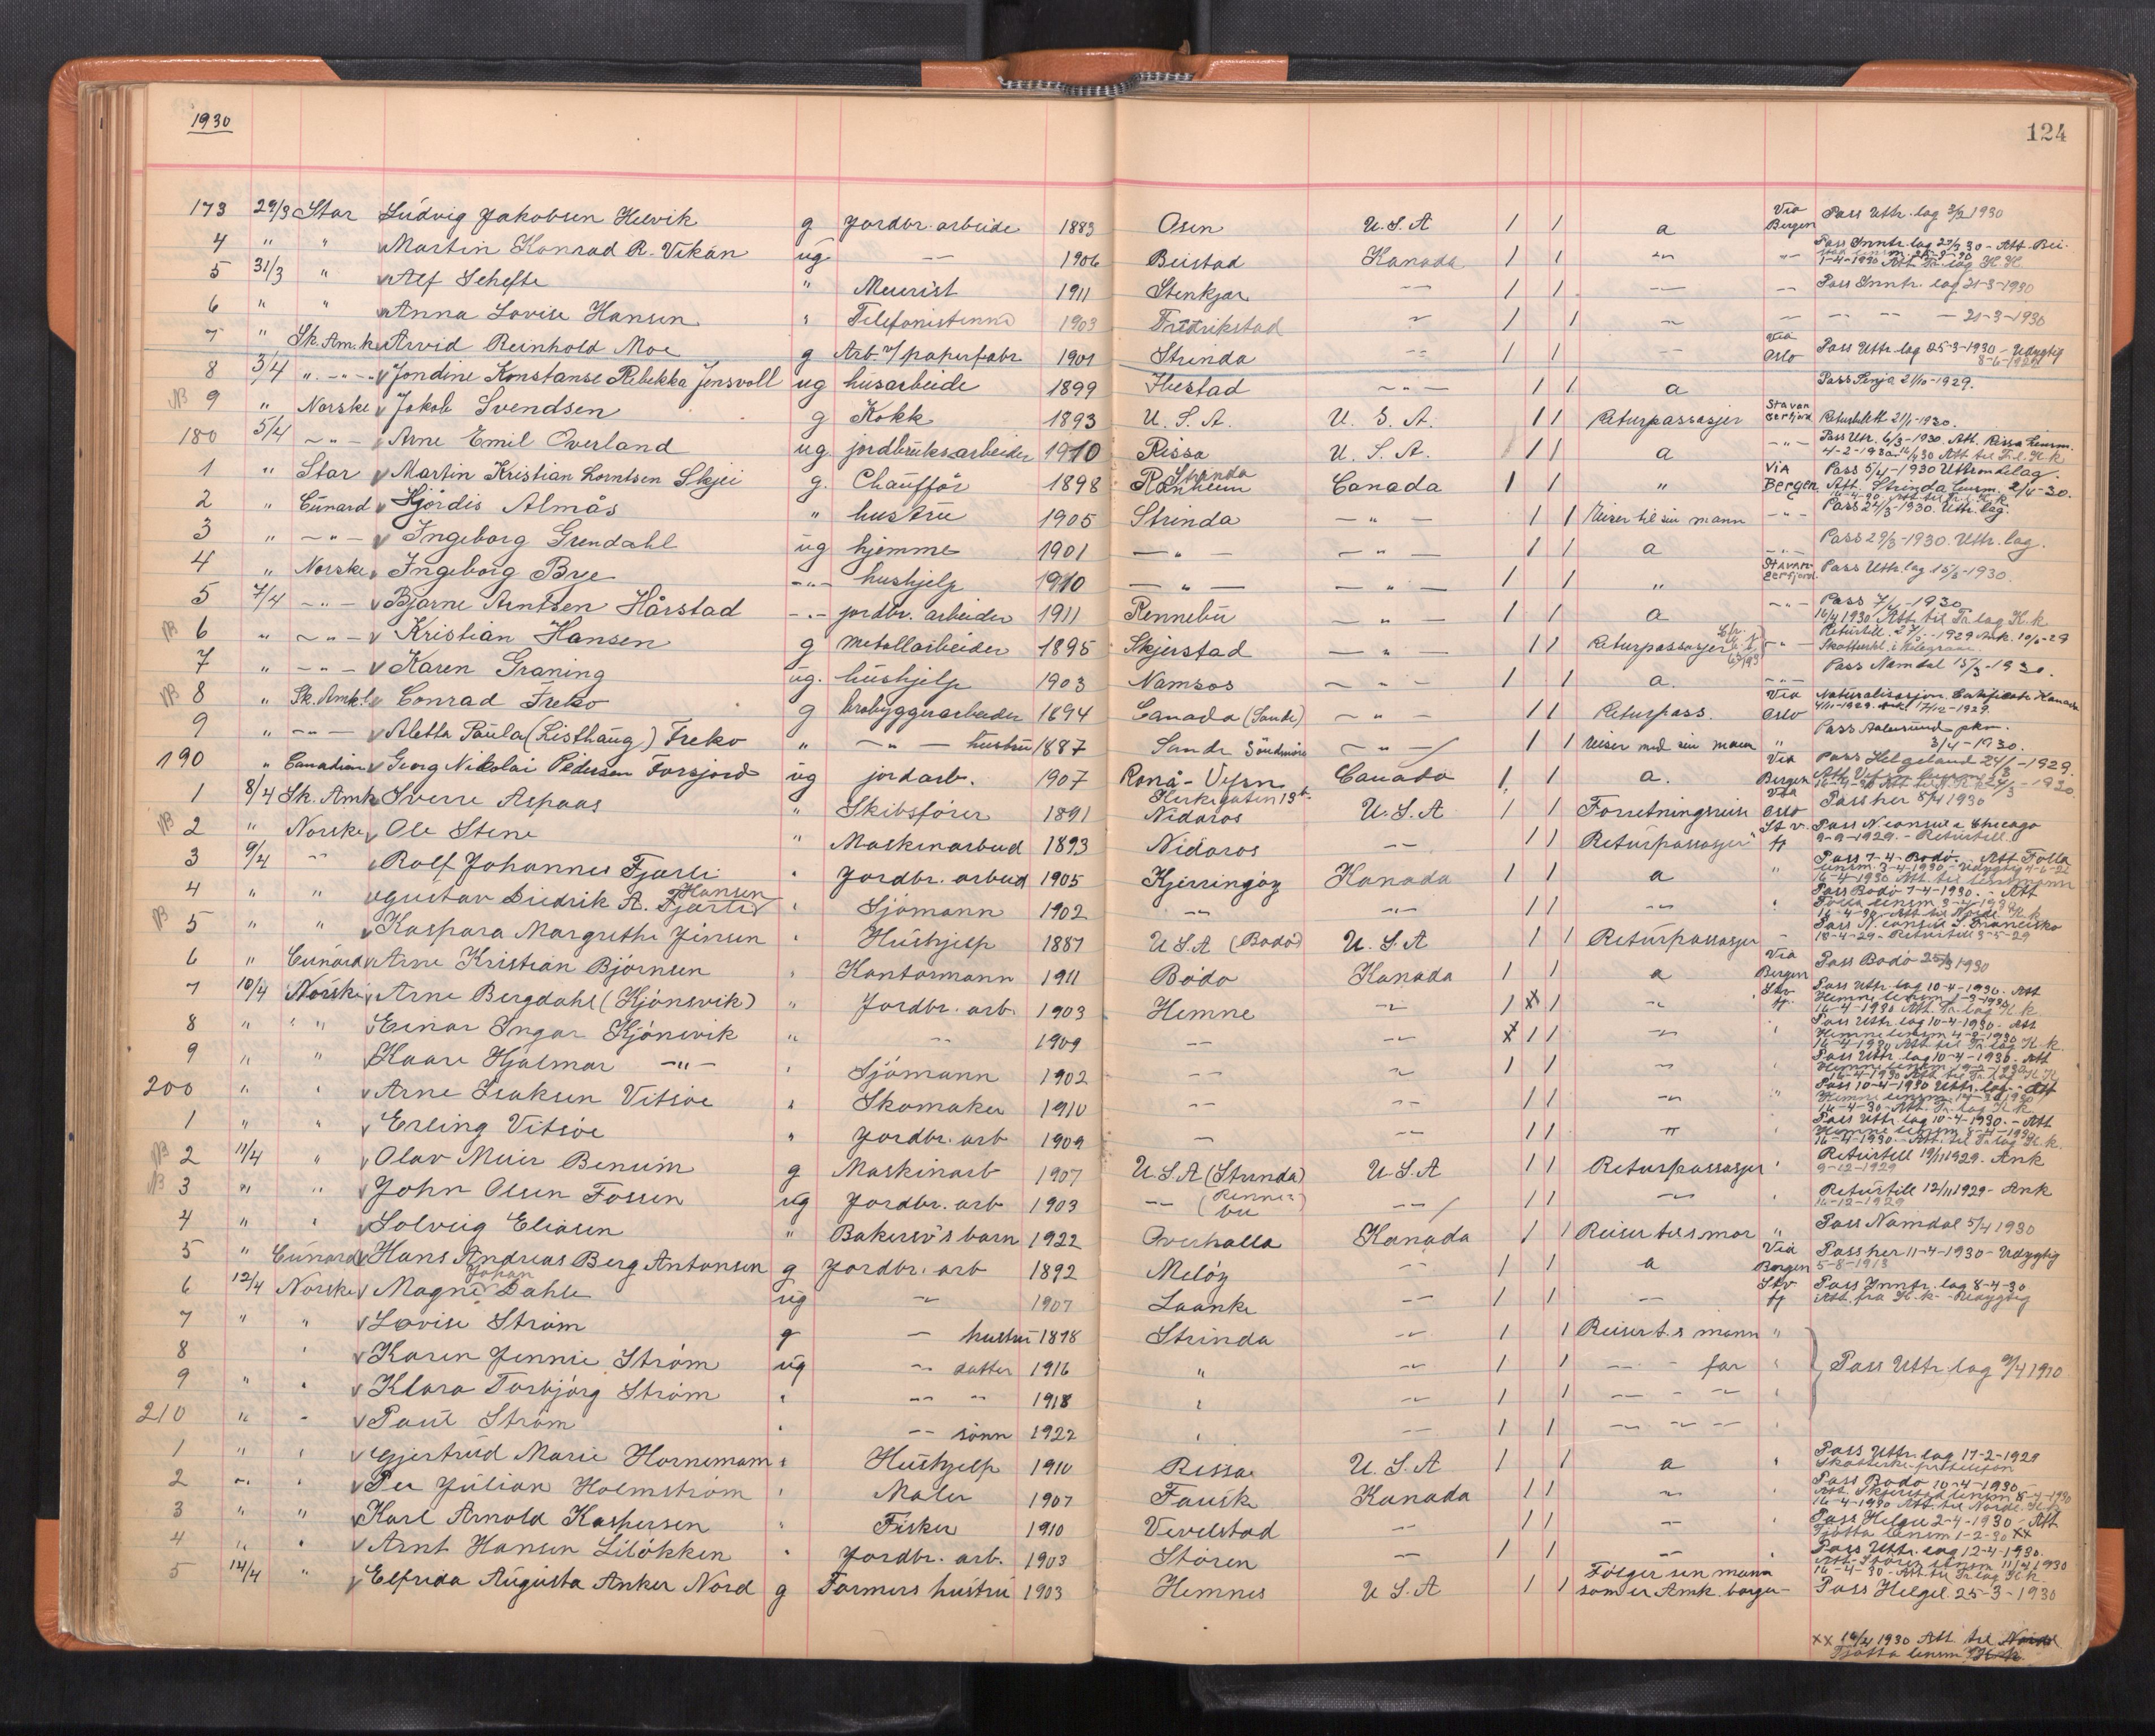 1930
124
173 29/3 Star Ludvig Jakobsen Helvik g Jordbr. arbeide 1883 Osen U.S.A 1 1 a Via Bergen Pass Uttr. lag 3/2 1930
4 " " Martin Konrad R. Vikan ug -"- 1906 Beistad Kanada 1 1 -"- -"- Pass Inntr. lag 29/3 30 - Att. Bei-
1-4-1930 Att. Tr. lag K.K.
5 31/3 " Alf Schefte " Meierist 1911 Stenkjær -"- 1 1 -"- -"- Pass Inntr. lag 21-3-1930
6 " " Anna Lovise Hansen " Telefonistinne 1903 Fredrikstad -"- 1 1 -"- -"- -"- -"- - 21-3-1930
7 " Sk. Am. k Arvid Reinhold Moe g Arb. v/ papirfabr 1901 Strinda -"- 1 1 -"- Via Oslo Pass Uttr. lag 25-3-1930 - Udygtig
8 3/4 " -"- Jondine Konstanse Rebekka Jensvoll ug husarbeide 1899 Ibestad -"- 1 1 a Pass Senja 21/10-1929.
NB 9 " Norske Jakob Svendsen g Kokk 1893 U.S.A. U.S.A. 1 1 Returpassasjer Stavangerfjord Returbillett 21/1-1930.
180 5/4 -"- Arne Emil Overland ug. jordbruksarbeider 1910 Rissa U.S.A. 1 1 a -"- Pass Utr. 6/3-1930. Att. Rissa lensm.
4-2-1930 16/4 30 Att til Tr. l. K.k
1 " Star Martin Kristian Lorntsen Skjei g. Chauffør 1898 Strinda Ranheim Canada 1 1 " Via Bergen Pass 5/4-1930 Uttrøndelag.
Att. Strinda lensm. 2/4-30.
2 " Cunard Hjørdis Almås " hustru 1905 Strinda -"- 1 1 Reiser til sin mann -"- Pass 24/3-1930. Uttr. lag.
3 " -"- Ingeborg Grendahl ug hjemme 1901 -"- -"- 1 1 a -"- Pass 29/3-1930. Uttr. lag.
4 " Norske Ingeborg Bye -"- hushjelp 1910 -"- -"- 1 1 " Stavangerfjord. Pass Uttr. lag 15/3-1930.
5 7/4 -"- Bjarne Arntsen Hårstad -"- jordbr. arbeider 1911 Rennebu -"- 1 1 a -"- Pass 7/4-1930
16/4 1930 Att til Tr. lag K.k
NB 6 " -"- Kristian Hansen g Metallarbeider 1895 Skjerstad -"- 1 1 Returpassasjer -"- Returbill.
7 " -"- Karen Graning ug. hushjelp 1903 Namsos -"- 1 1 a. -"- Pass Namdal 15/3-1930.
NB 8 " Sk. Amk. l. Conrad Freko g brobyggerarbeider 1894 Canada (Sande) -"- 1 1 Returpass. Via Oslo Naturalisasjon Certificate Kanada
4/11-1929. Ank 17/12-1929.
9 " -"- Aletta Paula (Listhaug) Freko " -"- hustru 1887 Sande Søndmøre -"- 1 1 Reiser med sin mann " Pass Aalesund pkm.
3/4-1930.
190 " Canadian Georg Nikolai Pedersen Forsjord ug jordarb. 1907 Roná-Vefsn Canada 1 1 a. Via Bergen Pass Helgeland 24/1-1929.
1 8/4 Sk. Amk Sverre Aspaas " Skibsfører 1891 Kirkegaten 19b Nidaros U.S.A 1 1 Forretningsreise Via Oslo Pass her 8/4 1930
NB 2 " Norske Ole Stene " Maskinarbeid 1893 Nidaros -"- 1 1 Returpassasjer St. v. fj Pass N. consul i Chicago
9-9-1929. - Returbill
3 9/4 -"- Rolf Johannes Fjærli " Jordbr. arbeid 1905 Kjerringøy Kanada 1 1 a " Pass 7-4-Bodø. Att Folla
lensm. 3-4-1930 - Udygtig 4-6-26
16-4-1930 Att. til lensmann
4 " " Gustav Diedrik A. Hansen Fjærli " Sjømann 1902 -"- -"- 1 1 -"- " Pass Bodø 7-4-1930. - Att
Folla lensm 3-4-1930
16-4-30 Att til Nordl. K.k
NB 5 " " Kaspara Margrethe Jensen " Hushjelp 1887 U.S.A (Bodø) U.S.A 1 1 Returpassasjer - Pass N. consul S. Francisko
18-4-29 - Returbill 3-5-29
6 " Cunard Arne Kristian Bjørnsen " Kontormann 1911 Bodø Kanada 1 1 a Via Bergen Pass Bodø 25/3 1930
7 10/4 Norske Arne Bergdahl (Kjønsvik) " Jordbr. arb. 1903 Hemne -"- 1 X 1 -"- Stv fj. Pass Uttr. lag 10-4-1930. Att
16-4-1930 Att. Tr. lag K.k.
8 " " Einar Ingar Kjønsvik " -"- 1909 -"- -"- X 1 1 -"- " Pass Uttr. lag 10-4-1930. Att
16-4-1930 Att til Tr. lag K.k.
9 " " Kaare Hjalmar -"- " Sjømann 1902 -"- -"- 1 1 -"- " Pass Uttr. lag 10-4-1930. Att
200 " " Arne Isaksen Vitsøe " Skomaker 1910 -"- -"- 1 1 -"- " Pass 10-4-1930 Uttr. lag. - Att
16-4-30 - Att. Tr. lag K.k
1 " " Erling Vitsøe " Jordbr. arb 1909 -"- -"- 1 1 -"- " Pass Uttr. lag 10-4-1930. - Att
Hemne lensm 8-4-1930
16-4-1930. - Att. til Tr. lag K.k.
NB 2 11/4 " Olav Meier Benum g Maskinarb 1907 U.S.A (Strinda) U.S.A 1 1 Returpassasjer " Returbill 19/11 1929. Ank
9-12-1929
NB 3 " " John Olsen Fossen ug Jordbr. arb 1903 -"- (Rennebu) -"- 1 1 -"- " Returbill 12/11 1929 - Ank
16-12-1929
4 " " Solveig Eliasen " Bakersv's barn 1922 Overhalla Kanada 1 1 Reiser til s mor " Pass Namdal 5/4 1930
5 " Cunard Hans Andreas Berg Antonsen g Jordbr. arb 1892 Meløy -"- 1 1 a Via Bergen Pass her 11-4-1930 - Udygtig
5-8-1913
6 12/4 Norske Magne Johan Dahle ug -"- 1907 Laanke -"- 1 1 -"- Stv fj Pass Inntr. lag 8-4-30
Att. fra K.k - Udygtig
7 " " Lovise Strøm g -"- hustru 1878 Strinda -"- 1 1 Reiser t. s mann "
8 " Karen Jennie Strøm ug -"- datter 1916 " -"- 1 1 -"- far " Pass Uttr. lag 9/4 1930
9 " " Klara Torbjørg Strøm " -"- " 1918 " -"- 1 1 -"- -"- "
210 " " Paul Strøm " -"- sønn 1922 " -"- 1 1 -"- -"- "
1 " " Gjertrud Marie Hornemann " Hushjelp 1910 Rissa U.S.A 1 1 a " Pass Uttr. lag 17-2-1929
2 " " Per Julian Holmstrøm " Maler 1907 Fauske Kanada 1 1 -"- " Pass Bodø 10-4-1930 -
Att. Skjerstad lensm 8-4-1930
16-4-1930 Att. til Nordl. K.k
3 " " Karl Arnold Kaspersen " Fisker 1910 Vevelstad -"- 1 1 -"- Pass Helgel 2-4-1930 - Att
Tjøtta lensm 1-2-30 XX
4 " " Arnt Hansen Liløkken " Jordbr. arb. 1903 Støren -"- 1 1 -"- Pass Uttr. lag 12-4-1930.
Att. Støren lensm 11/4 1930
16-4-30 - Att til Tr. lag K.k
5 14/4 " Elfrida Augusta Anker Nord g Farmers hustru 1903 Hemnes U.S.A 1 1 Følger sin mann
som er Amk. borger - Pass Helgel. 25-3-1930
XX 16/4 1930 Att. til
Tjøtta lensm